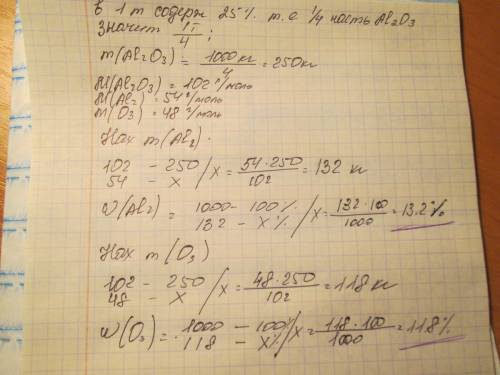 В 1 т содерж 25% т.е 1/4 часть Al₂O₃
Значит 1т/4;
m(Al₂O₃) = 1000 кг/4 = 250 кг
M(Al₂O₃) = 102 г/моль
M(Al₂) = 54 г/моль
m(O₃) = 48 г/моль
Нах m(Al₂).
102 – 250
54 – x / x = 54·250/102 = 132 кг
W(Al₂) = 1000 – 100%
132 – x% / x = 132·100/1000 = 13.2%
Нах m(O₃)
102 – 250
48 – x / x = 48·250/102 = 118 кг
W(O₃) = 1000 – 100%
118 – x% / x = 118·100/1000 = 11.8%